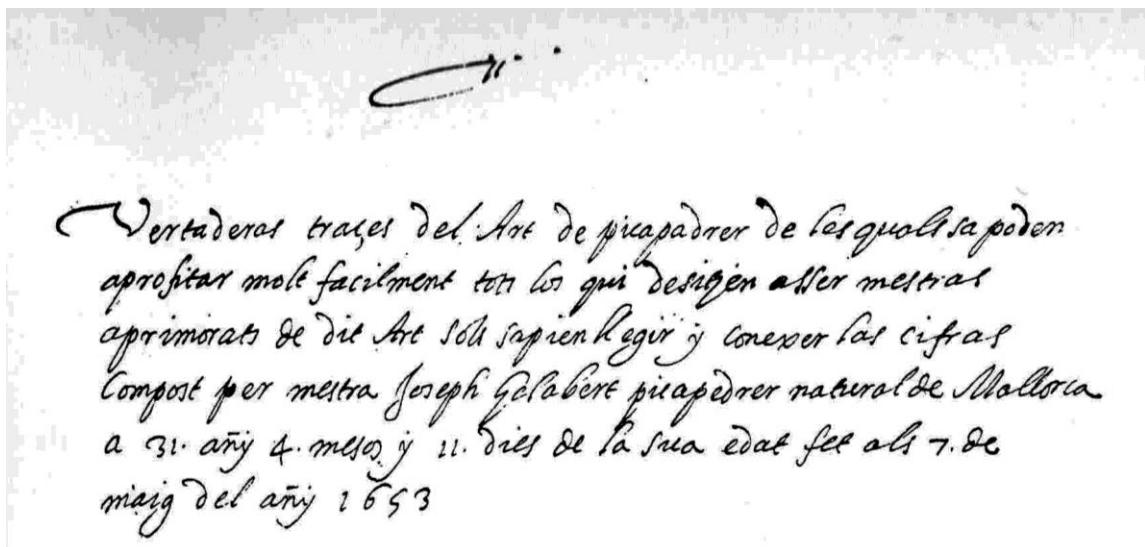 Vertaderas traçes del Art de picapadrer de les quals sa poden
aprofitar molt facilment tots los qui desitjen asser mestras
aprimorats de dit Art sols sapien llegir y conexer las cifras
Compost per mestra Joseph Gelabert picapedrer natural de Mallorca
a 31. añy 4. mesos y 11. dies de la sua edat fet als 7. de
maig del añy 1653